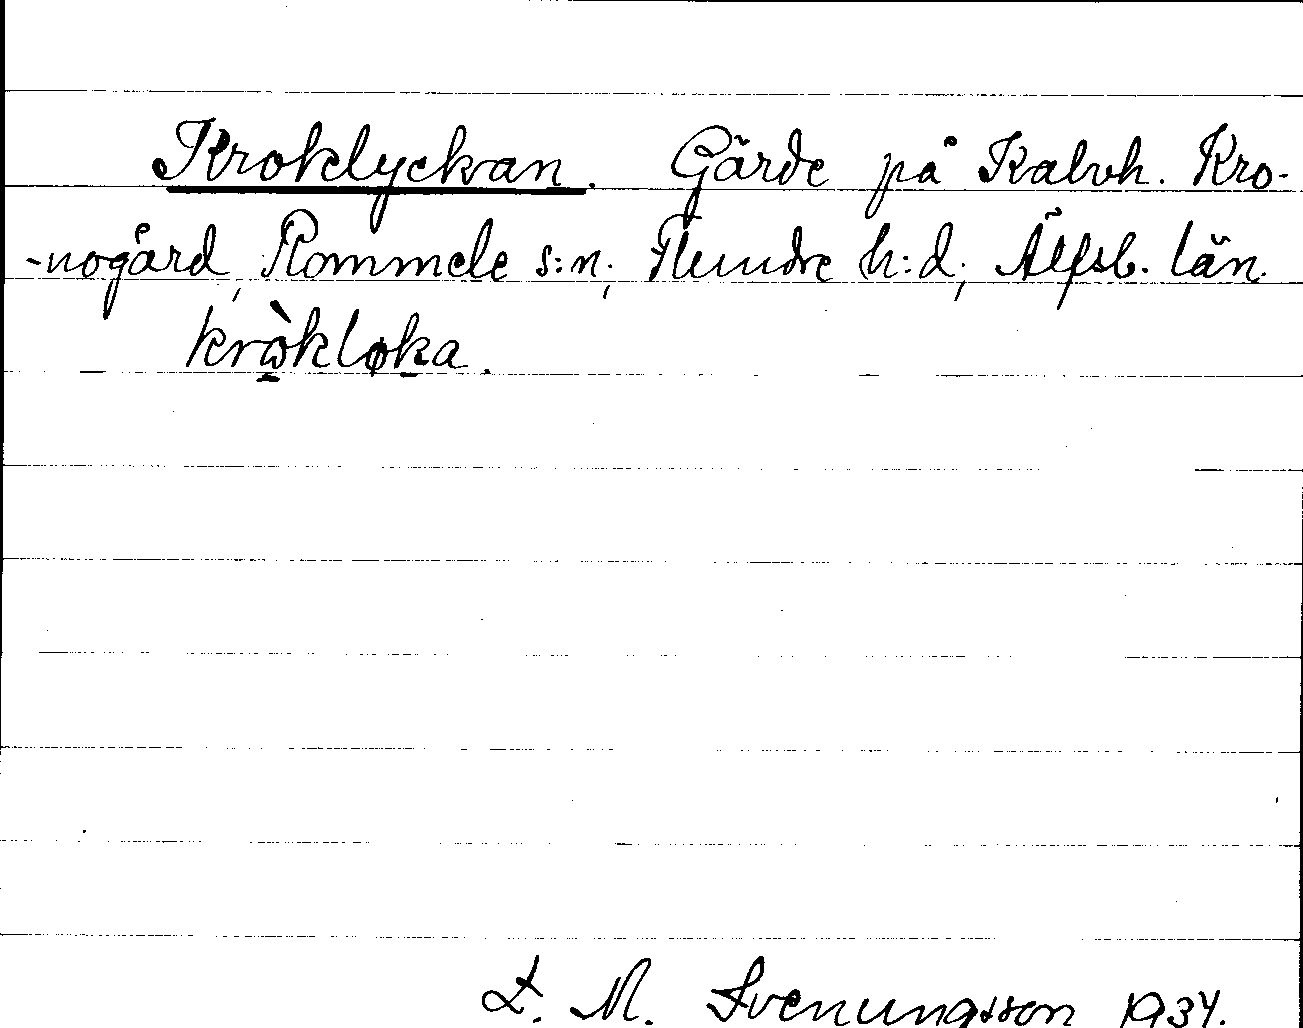 Kroklyckan. Gärde på Kalvh. Kro-
-nogård, Rommele s:n; Flundre h:d; Älfsb. län.
krὼkløka.
L. M. Svenungsson 1934.